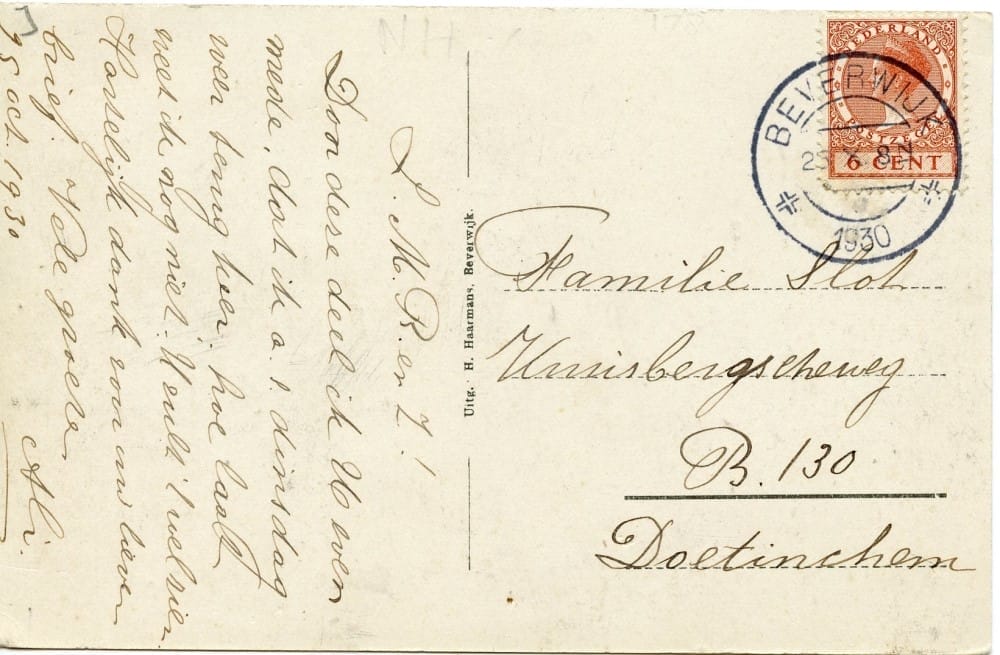 NH
L. M. B. en Z!
Door deze deel ik U even
mede, dat ik a. s. dinsdag
weer terug keer hoe laat
weet ik nog niet. U zult 't wel zien
Hartelijk dank voor uw lieve
brief. Vele groeten
Ali.
25 oct. 1930
Uitg. H. Haarmans, Beverwijk.
NEDERLAND
POSTZEGEL
6 CENT
BEVERWIJK
8N
1930
Familie Slot
Kruisbergscheweg
B. 130
Doetinchem